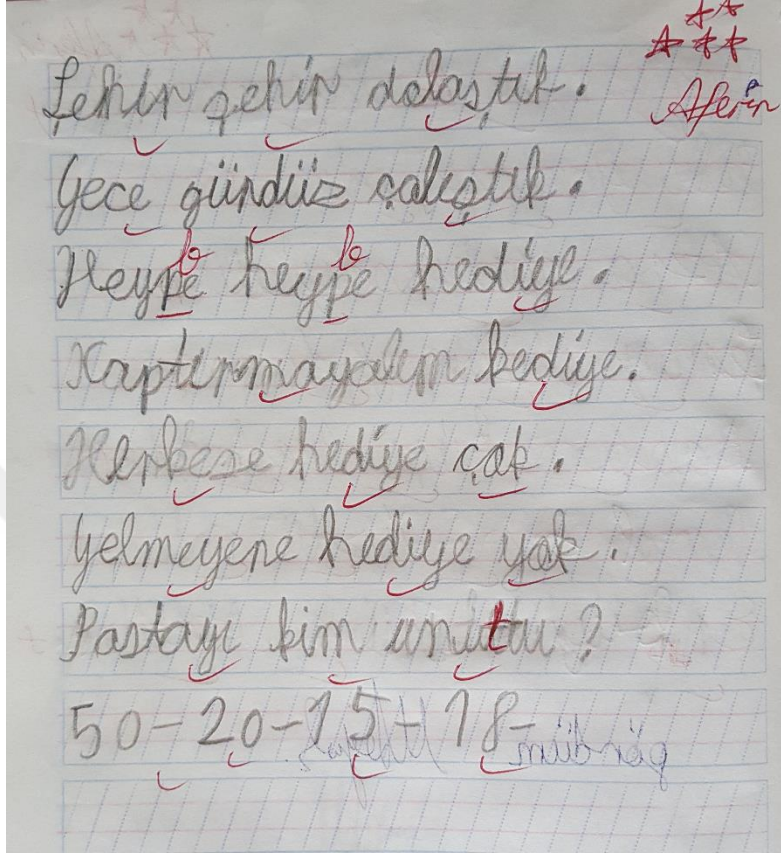 Aferin
Şehir şehir dolaştık.
Gece gündüz çalıştık.
Heype heype hediye.
b b
Kaptırmayalım kediye.
Herkese hediye çok.
Gelmeyene hediye yok.
Pastayı kim unuttu?
50-20-15-18-